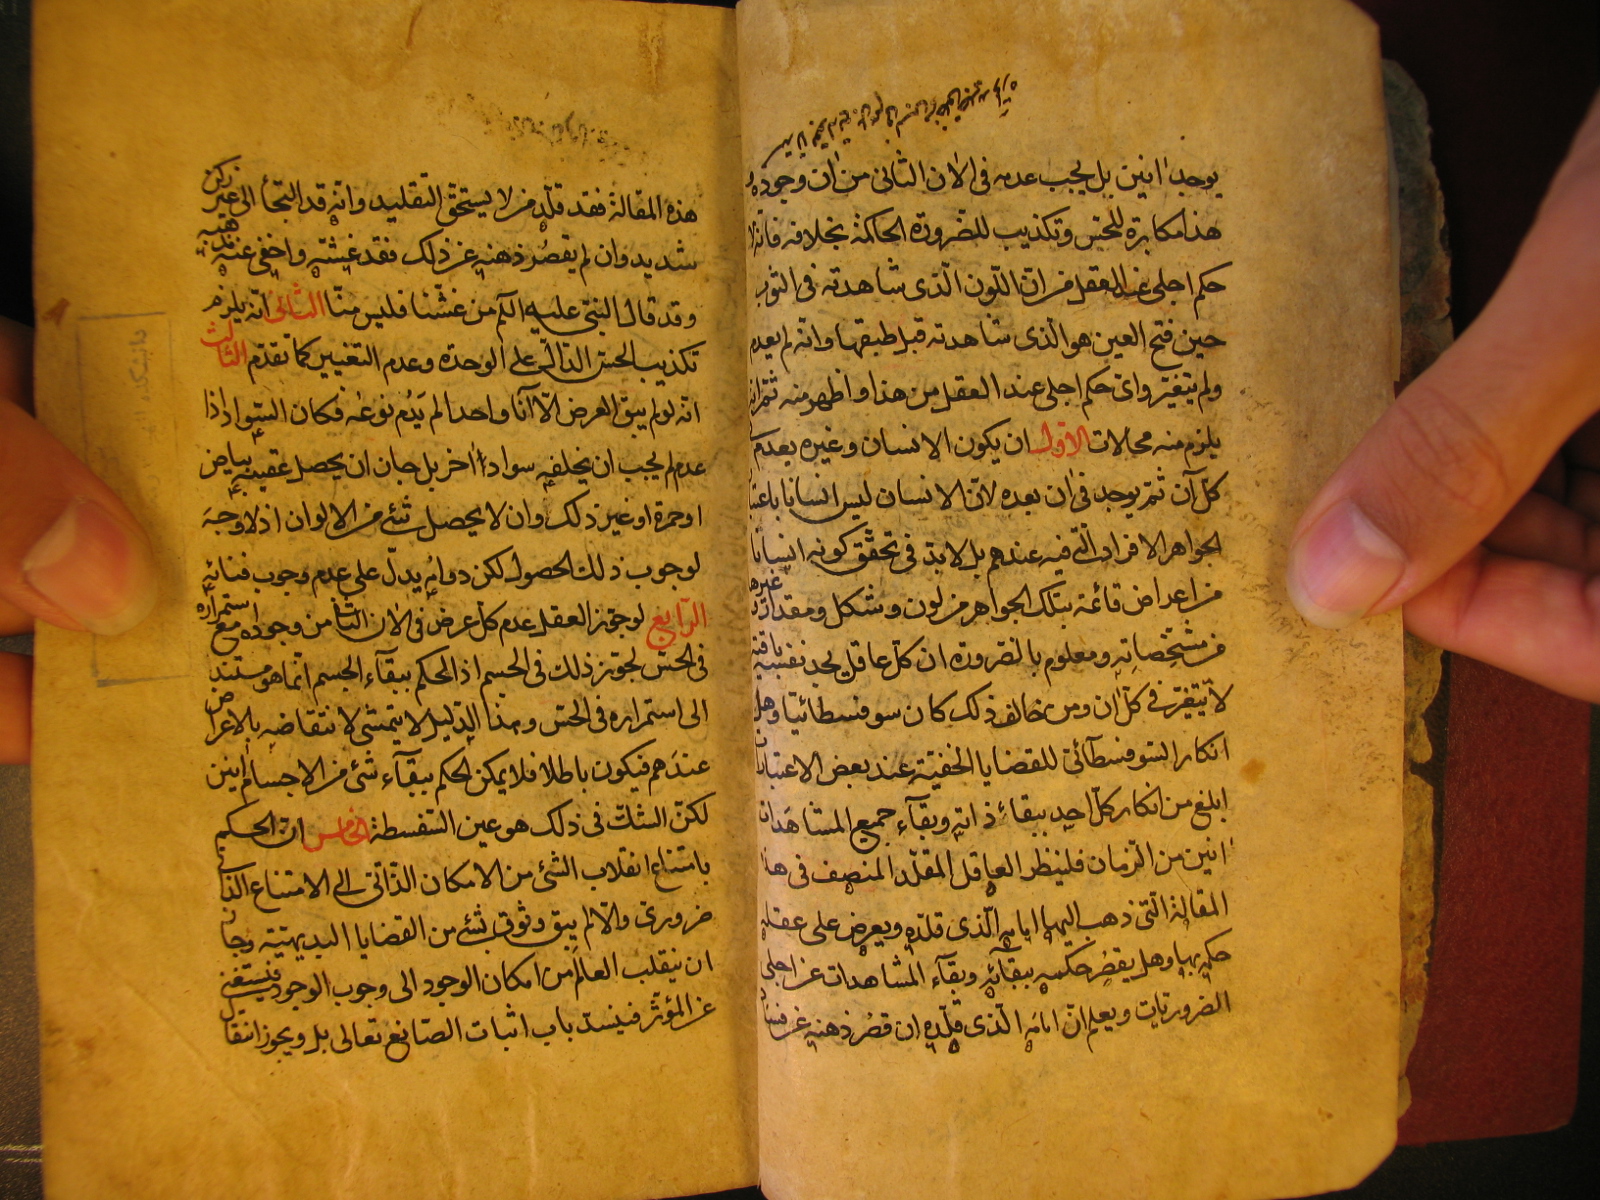 يوجد آنين بل يجب عدمه في الآن الثاني من آن وجوده و
هذا مكابرة للحس وتكذيب للضرورة الحاكمة بخلافه فانه لا
حكم اجلى عند العقل من ان اللون الذي شاهدته في الثوب
حين فتح العين هو الذي شاهدته قبل طبقها وانه لم يعدم
ولم يتغير واي حكم اجلى عند العقل من هذا واظهر منه ثم انه
يلزم منه محالات الاول ان يكون الانسان وغيره يعدم
كل آن ثم يوجد في آن بعده لان الانسان ليس انسانا باعتبار
الجواهر الافراد التي فيه عندهم بل لا بد في تحقق كونه انسانا
من اعراض قائمة بتلك الجواهر من لون وشكل ومقدار وغيرها
من مشخصاته ومعلوم بالضرورة ان كل عاقل يجد نفسه باقية
لا يتغير في كل آن ومن خالف ذلك كان سوفسطائيا وهل
انكار السوفسطائي للقضايا الخفية عند بعض الاعتبارات
ابلغ من انكار كل احد ببقاء ذاته وبقاء جميع المشاهدات
آنين من الزمان فلينظر العاقل المقلد المنصف في هذه
المقالة التي ذهب اليها امامه الذي قلده ويعرض على عقله
حكمه بها وهل يقصر حكمه ببقائه وبقاء المشاهدات عن اجلى
الضروريات ويعلم ان امامه الذي قلده ان قصر ذهنه عن فساد
هذه المقالة فقد قلد من لا يستحق التقليد وانه قد التجأ الى غير ركن
شديد وان لم يقصر ذهنه عن ذلك فقد غشه واخفى عنه مذهبه
وقد قال النبي عليه السلم من غشنا فليس منا الثاني انه يلزم
تكذيب الحس الدال على الوحدة وعدم التغيير كما تقدم الثالث
انه لو لم يبق العرض الا آنا واحدا لم يدم نوعه فكان السواد اذا
عدم لم يجب ان يخلفه سواد آخر بل جاز ان يحصل عقيبه بياض
او حمرة او غير ذلك وان لا يحصل شئ من الالوان اذ لا وجه
لوجوب ذلك الحصول لكن دوامه يدل على عدم وجوب فنائه
الرابع لو جوز العقل عدم كل عرض في الآن الثاني من وجوده مع استمراره
في الحس لجوز ذلك في الجسم اذ الحكم ببقاء الجسم انما هو مستند
الى استمراره في الحس وهذا الدليل لا يتمشى لانتقاضه بالاعراض
عندهم فيكون باطلا فلا يمكن الحكم ببقاء شئ من الاجسام آنين
لكن الشك في ذلك هو عين السفسطة الخامس ان الحكم
بامتناع انقلاب الشئ من الامكان الذاتي الى الامتناع الذاتي
ضروري والا لم يبق وثوق بشئ من القضايا البديهية وجاز
ان ينقلب العالم من امكان الوجود الى وجوب الوجود فيستغني
عن المؤثر فينسد باب اثبات الصانع تعالى بل ويجوز انتقال
دانشكده